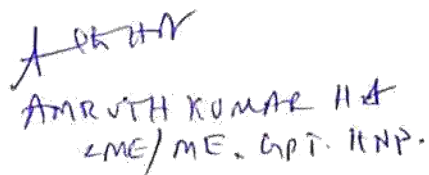 AMRUTH KUMAR H A
LME/ME. GPT. KNP.